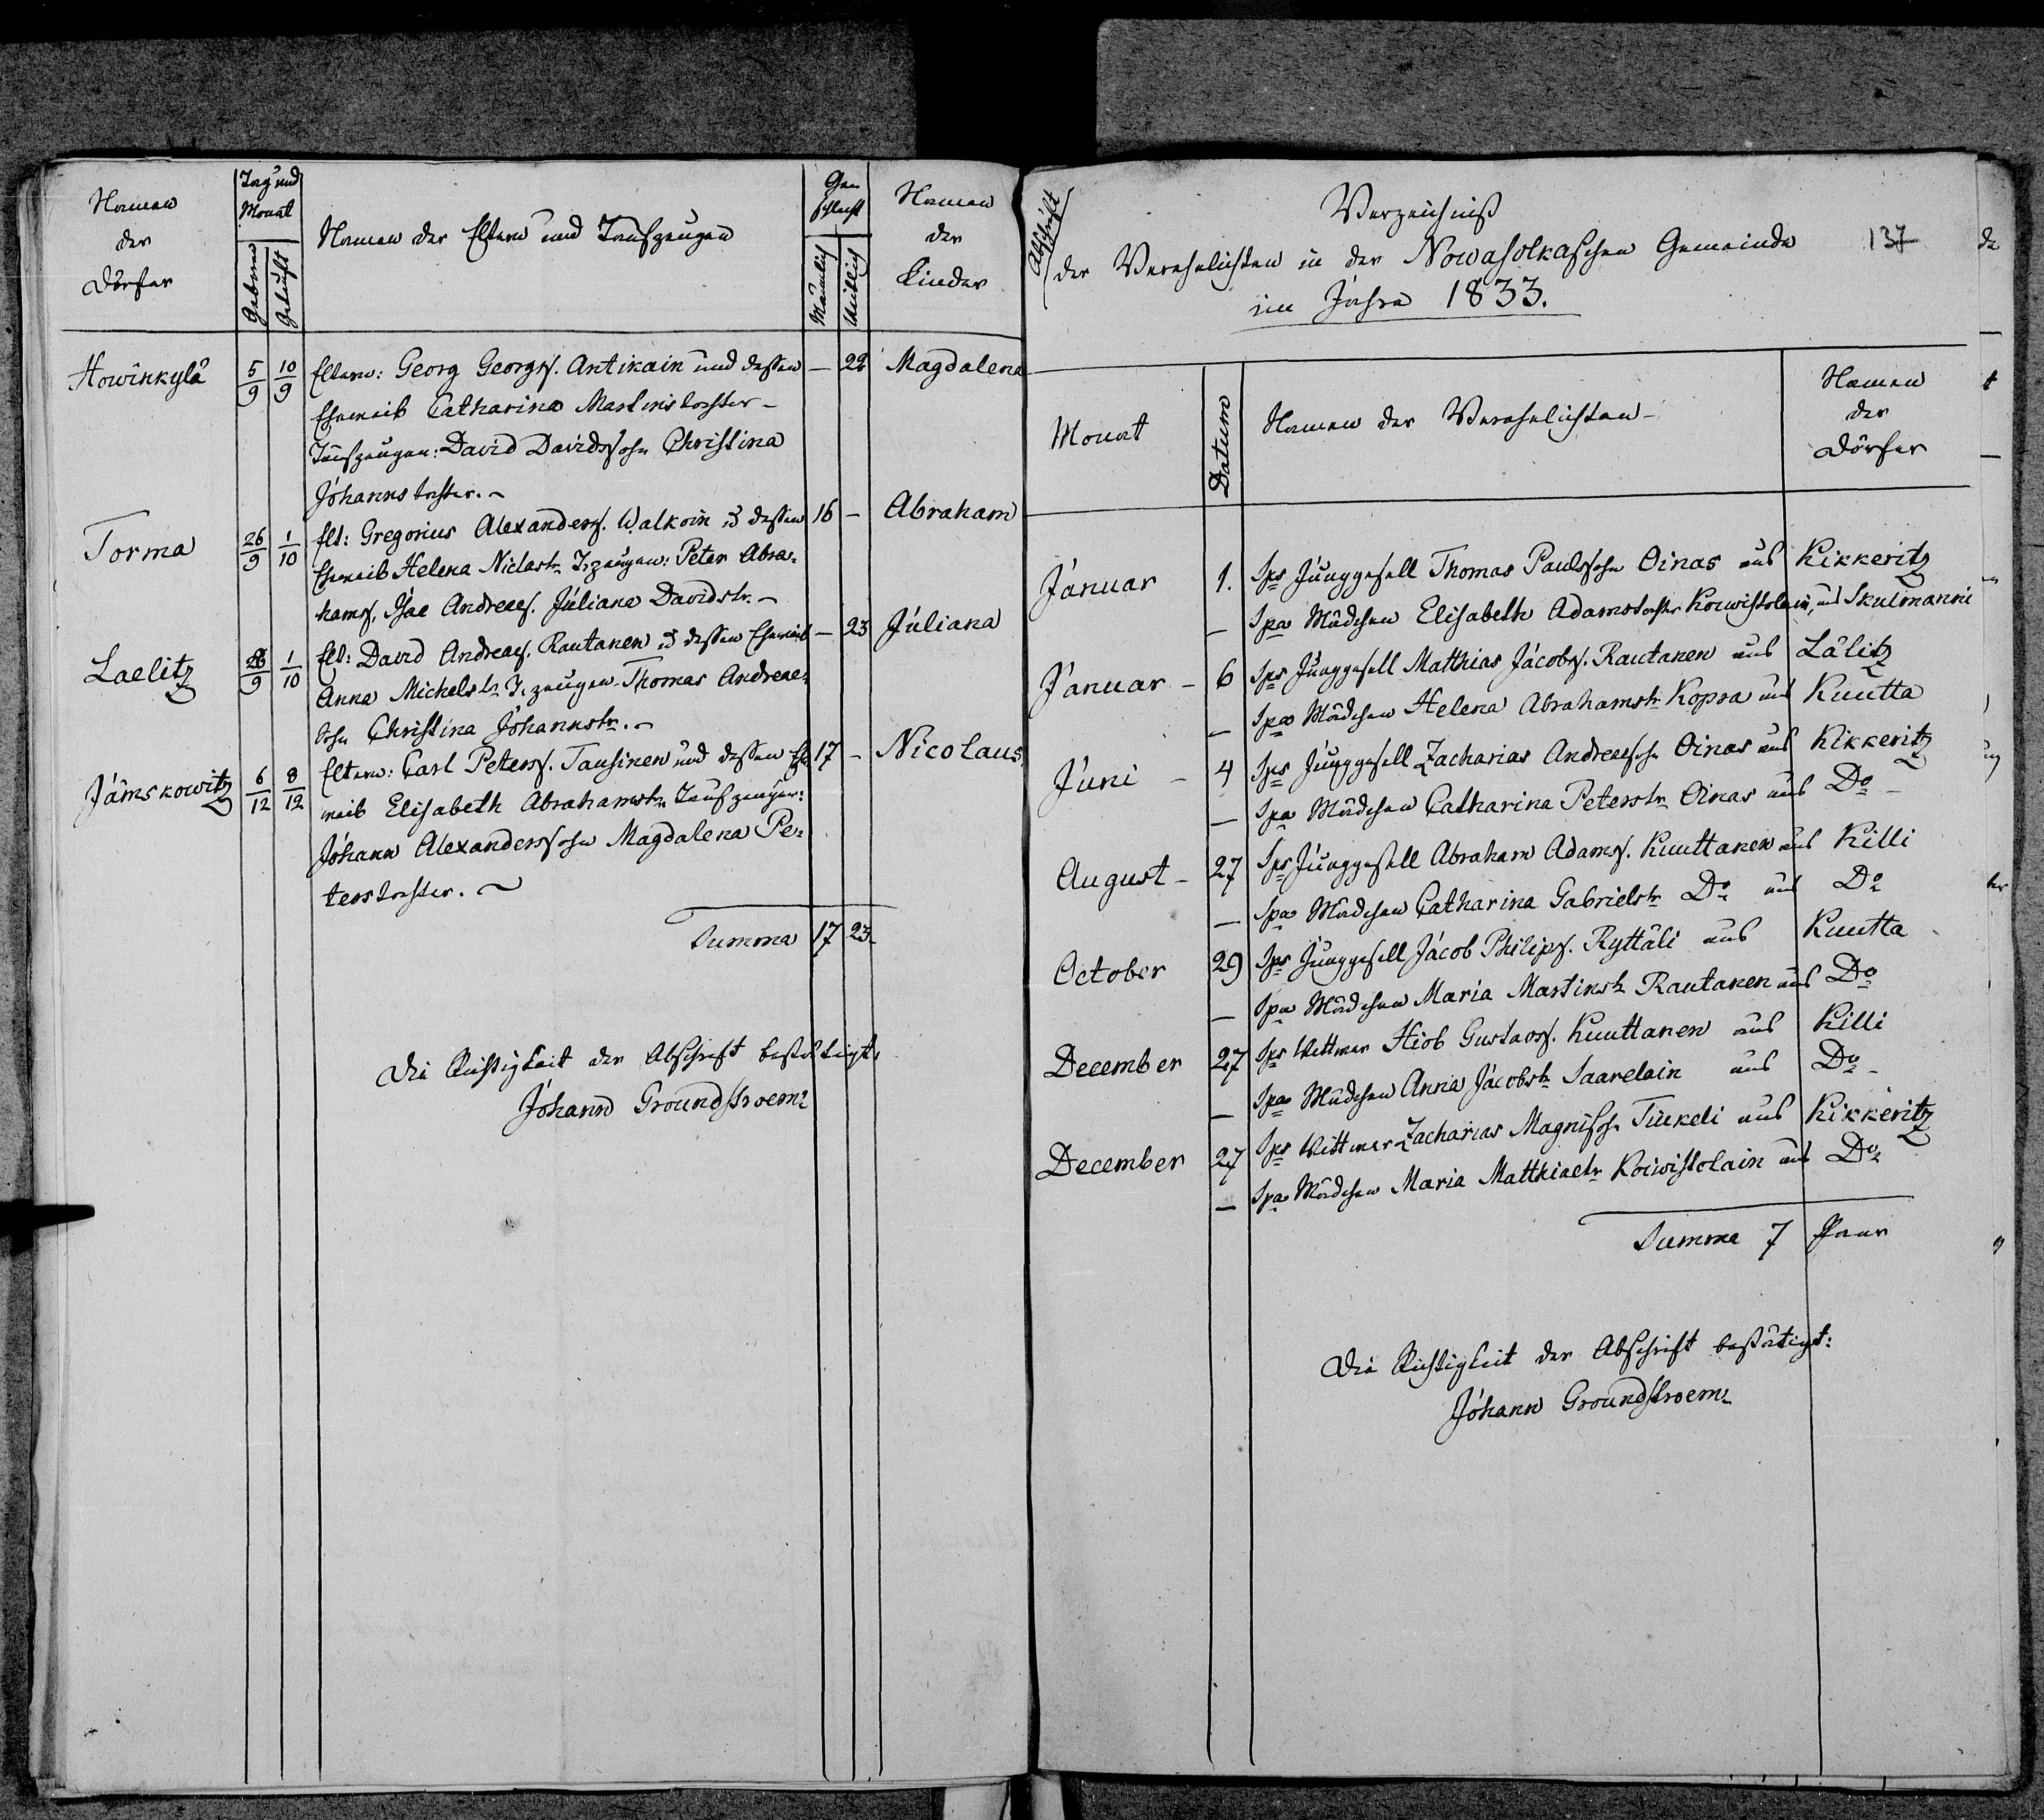 Namen
der
Dörfer
Tag und
Monat
Geboren
Getauft
Namen der Eltern und Taufzeugen
Ge-
schlecht
Männlich
Weiblich
Namen
der
Kinder
Howinkylä 5/9 10/9 Eltern: Georg Georgs. Antikain und dessen — 22 Magdalena
Eheweib Catharina Martinstochter –
Taufzeugen: David Davidssohn Christina
Johannstochter. –
Torma 26/9 1/10 Elt: Gregorius Alexanders. Walkoin u dessen 16 – Abraham
Eheweib Helena Niclastr. T. zeugen: Peter Abra-
hams. Isac Andreaes. Juliana Davidstr. –
Laelitz 26/9 1/10 Elt: David Andreaes. Rautanen u dessen Eheweib – 23 Juliana
Anna Michelstr. T. zeugen Thomas Andreae-
sohn Christina Johannstr. –
Jämskowitz 6/12 8/12 Eltern: Carl Peters. Tausinen und dessen Ehe- 17 – Nicolaus
weib Elisabeth Abrahamstr. Taufzeugen:
Johann Alexanderssohn Magdalena Pe-
terstochter. ~
Summa 17 23
Die Richtigkeit der Abschrift bestätigt:
Johann Groundstroem
Abschrift
Verzeichniß
137
der Verehelichten in der Nowasolkaschen Gemeinde
im Jahre 1833.
Monat
Datum
Namen der Verehelichten –
Namen
der
Dörfer
Januar 1. Sps Junggesell Thomas Paulssohn Oinas aus Kikkeritz
— Spa Mädchen Elisabeth Adamstochter Koiwistolain, aus Skulmanni
Januar – 6 Sps Junggesell Matthias Jacobs. Rautanen aus Lälitz
— Spa Mädchen Helena Abrahamstr Kopra aus Kuutta
Juni – 4 Sps Junggesell Zacharias Andreaesohn Oinas aus Kikkeritz
— Spa Mädchen Catharina Peterstr. Oinas aus Do –
August – 27 Sps Junggesell Abraham Adams. Kuuttanen aus Killi
— Spa Mädchen Catharina Gabrielstr Do aus Do
October 29 Sps Junggesell Jacob Philips. Ryttäli aus Kuutta
— Spa Mädchen Maria Martinstr Rautanen aus Do
December 27 Sps Wittwer Hiob Gustavs. Kuuttanen aus Killi
— Spa Mädchen Anna Jacobstr Saarelain aus Do –
December 27 Sps Wittwer Zacharias Magnissohn Tiukeli aus Kikkeritz
— Spa Mädchen Maria Matthiaetr Koiwistolain aus Do
Summa 7 Paar
Die Richtigkeit der Abschrift bestätigt:
Johann Groundstroem